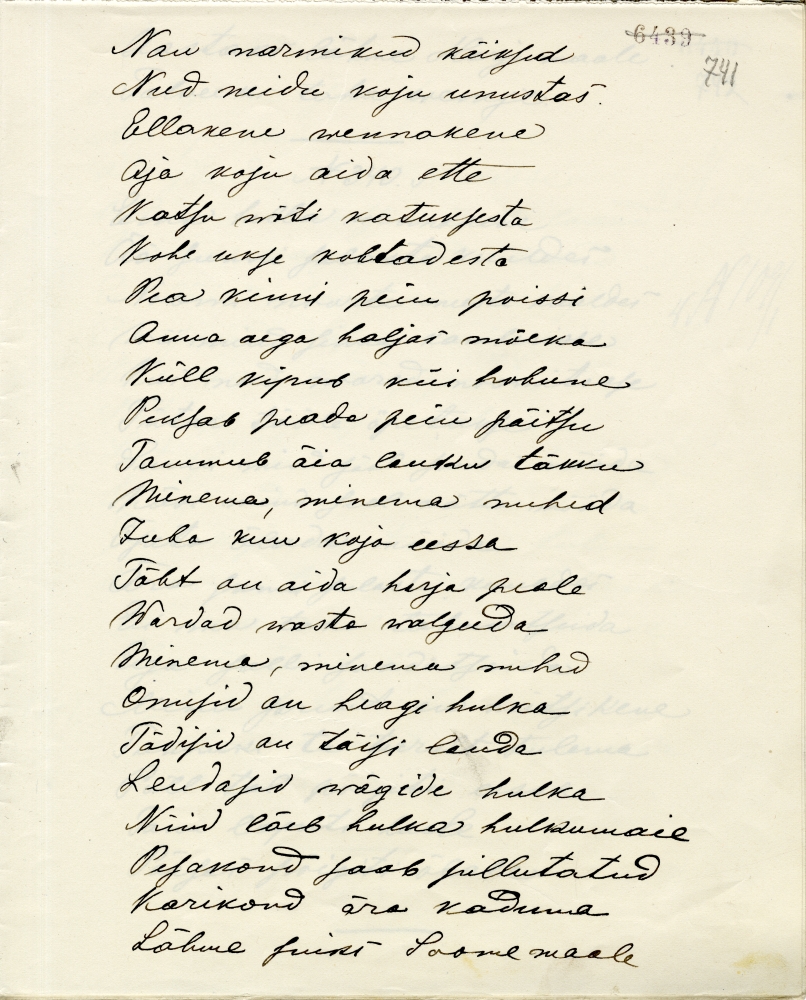 6439
741
Nau narmikud käiksed
Nud neidu koju unustas.
Ellakene wennakene
Aja koju aida ette
Katsu wõti katuksesta
Kohe ukse kohtadesta
Pea kinni peiu poissi
Anna aega haljas mõeka
Küll kipub küi hobune
Peksab peada peiu päitsu
Tammub äia lauku täkku
Minema, minema mehed
Juba kuu koja eessa
Täht au aida harja peale
Wardad wasta walgeeda
Minema, minema mehed
Onusid au heagi hulka
Tädisid au täisi lauda
Lendasid wägide hulka
Nüid läeb hulka hulkumaie
Pesakond saab pillutatud
Karikond ära kaduma
Lähme suist Soome maale